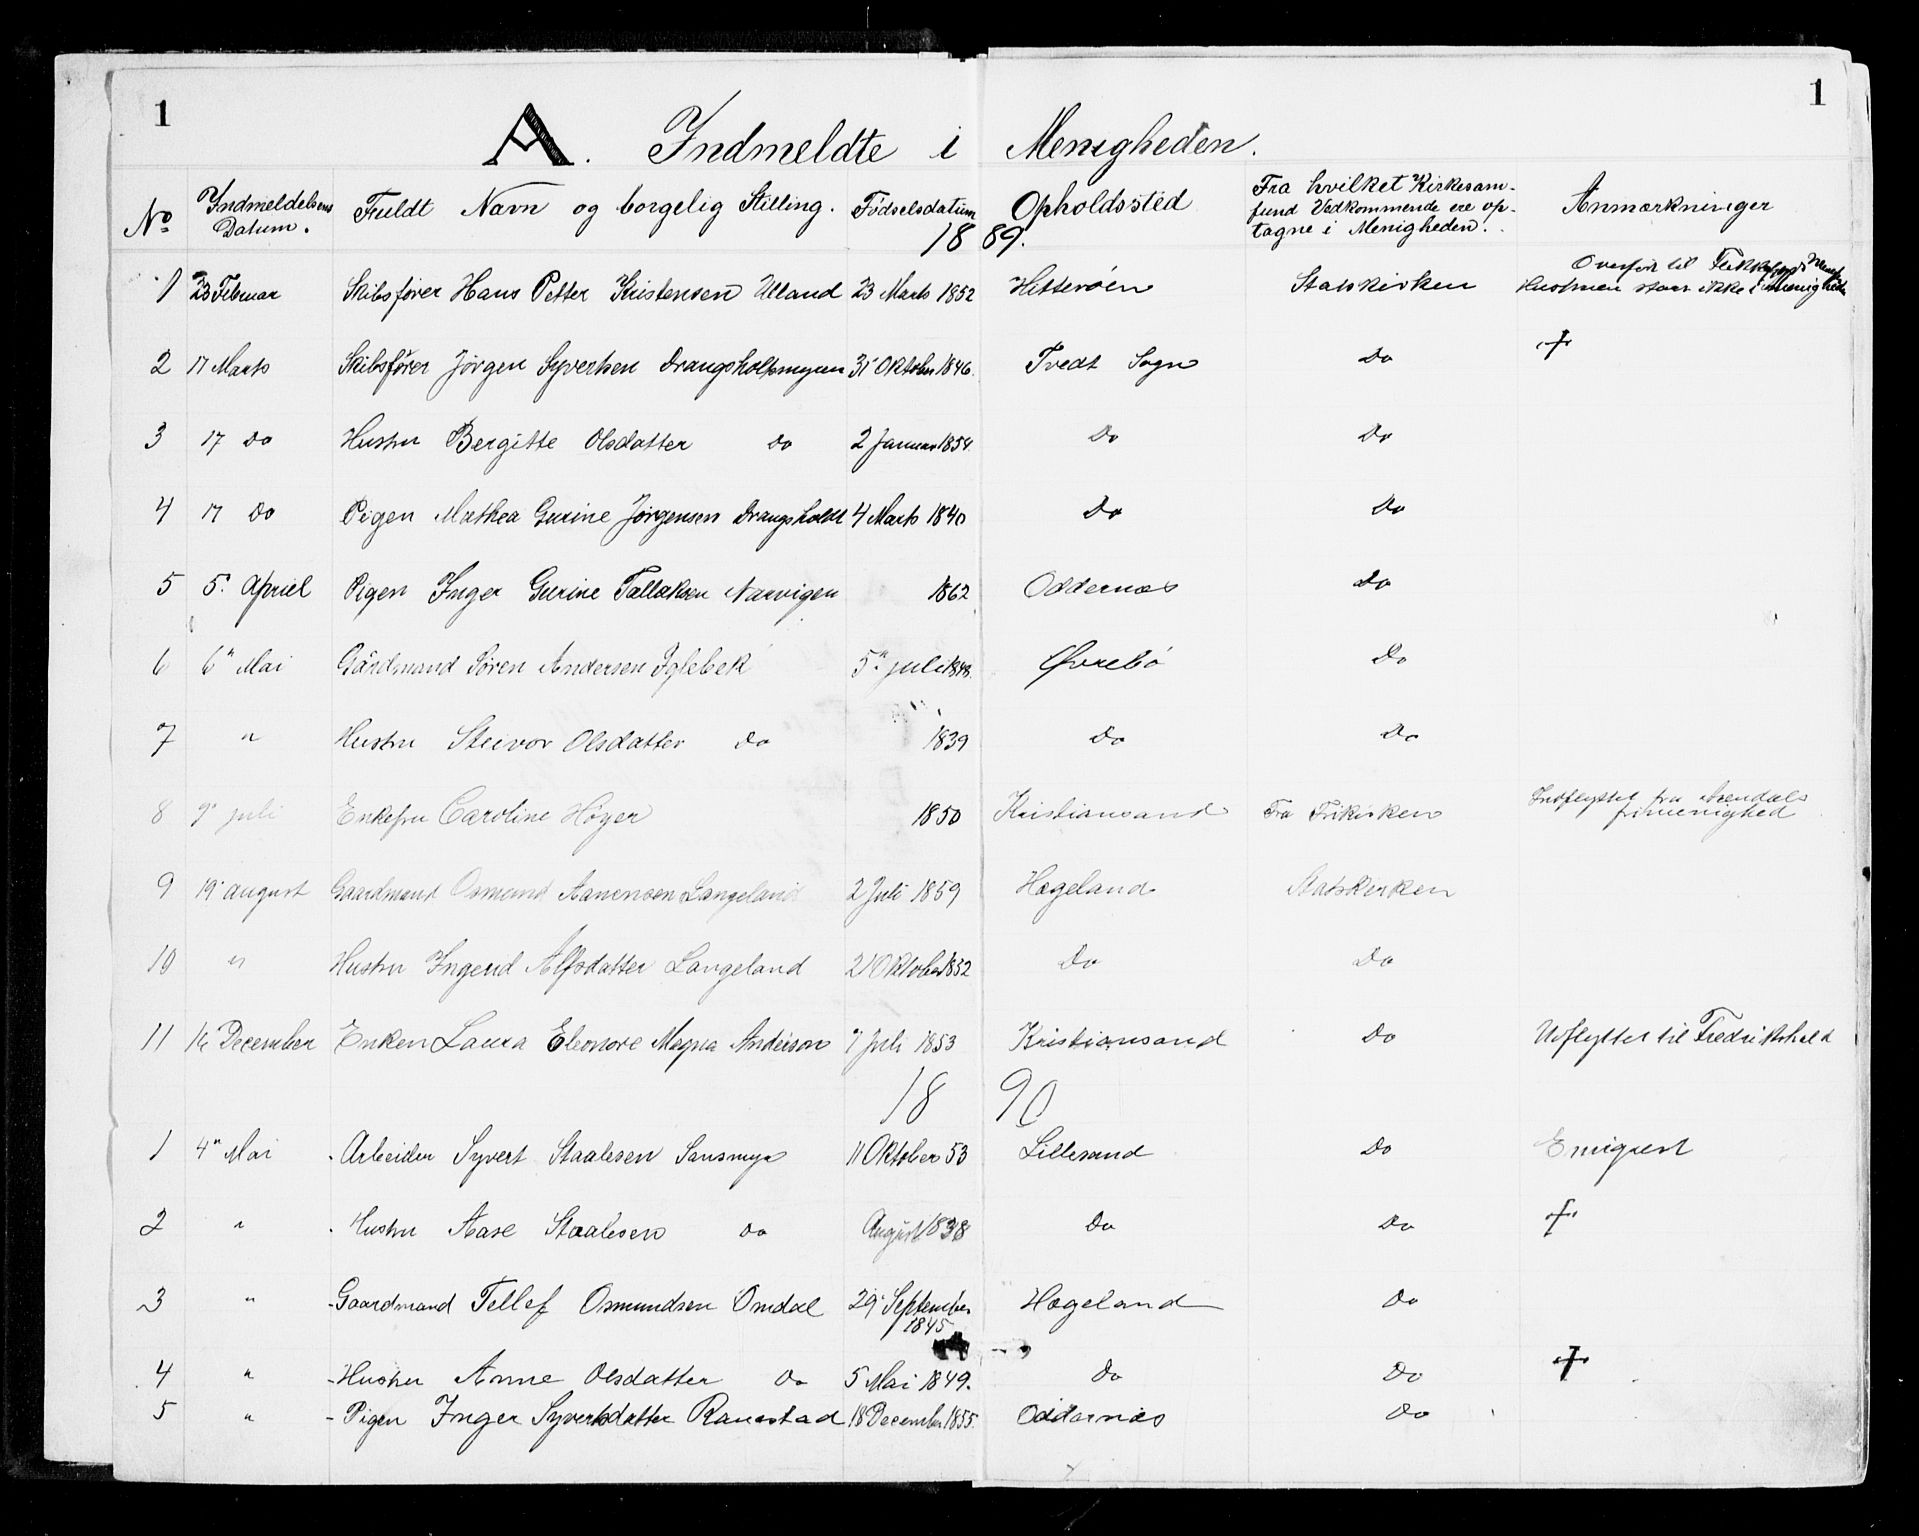 1
1
A. Indmeldte i Menigheden.
No Indmeldelsens Datum. Fuldt Navn og borgelig Stilling. Fødselsdatum Opholdssted Fra hvilket Kirkesamfund Vedkommende ere optagne i Menigheden. Anmærkninger
18 89.
1 23 Februar Skibsfører Hans Petter Kristensen Ulland 23 Marts 1852 Hitterøen Statskirken Overført til Flekkefjords Hustruen staar ikke i menigheden
2 17 Marts Skibsfører Jørgen Syvertsen Drangsholtsmyren 31 Oktober 1846. Tvedt Sogn Do +
3 17 Do Hustru Bergitte Olsdatter Do 2 Januar 1854. Do Do
4 17 Do Pigen Mathea Gurine Jørgensen Drangsholdt 4 Marts 1840 Do Do
5 5. Apriel Pigen Inger Gurine Tallaksen Narvigen 1862 Oddernæs Do
6 6" Mai Gårdmand Søren Andersen Iglebek 5" juli Øvrebø Do
7 " Hustru Steivor Olsdatter Do 1839 Do Do
8 9" juli Enkefru Caroline Høyer 1850 Kristiansand Fra Frikirken Indflyttet fra Arendals frimenighed
9 19" august Gaardmand Osmund Aanensen Langeland 2 Juli 1859 Hægeland Statskirken
10 " Hustru Ingerd Alfsdatter Langeland 21 Oktober 1852 Do Do
11 16 December Enken Laura Eleonore Magna Anderson 7 Juli 1853 Kristiansand Do Udflyttet til Fredrikshald
18 90
1 4" Mai Arbeider Syvert Staalesen Sansmyr 11 Oktober 53 Lillesand Do Emigrert
2 " Hustru Aase Staalesen Do August 1838 Do Do +
3 " Gaardmand Tellef Osmundsen Omdal 29 September 1845 Hægeland Do
4 " Hustru Anne Olsdatter Do 5 Mai 1849. Do Do +
5 " Pigen Inger Syvertsdatter Raustad 18 December 1855. Oddernæs Do